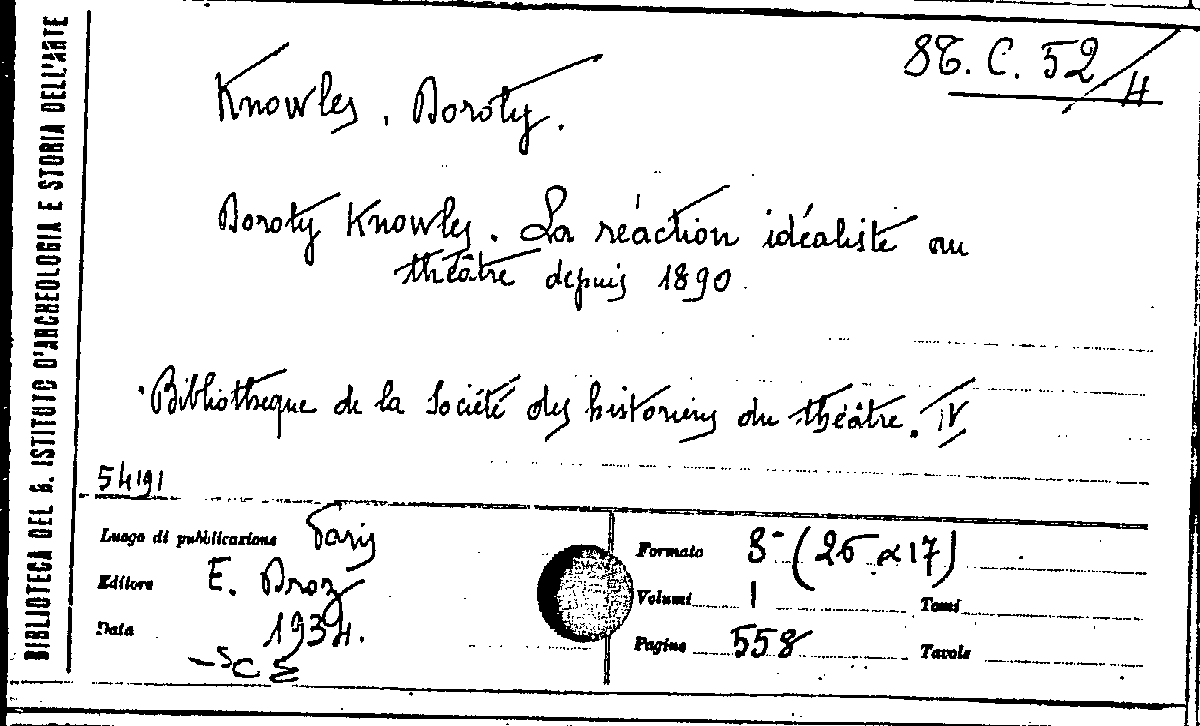 BIBLIOTECA DEL R. ISTITUTO D'ARCHEOLOGIA E STORIA DELL'ARTE
Knowles, Doroty.
Doroty Knowles. La réaction idéaliste au
théâtre depuis 1890.
Bibliothèque de la Société des historiens du théâtre. IV
54191
Luogo di pubblicazione Paris
Editore E. Droz
Data 1934.
Formato 8° (25 x 17)
Volumi 1 Tomi
Pagine 558 Tavole